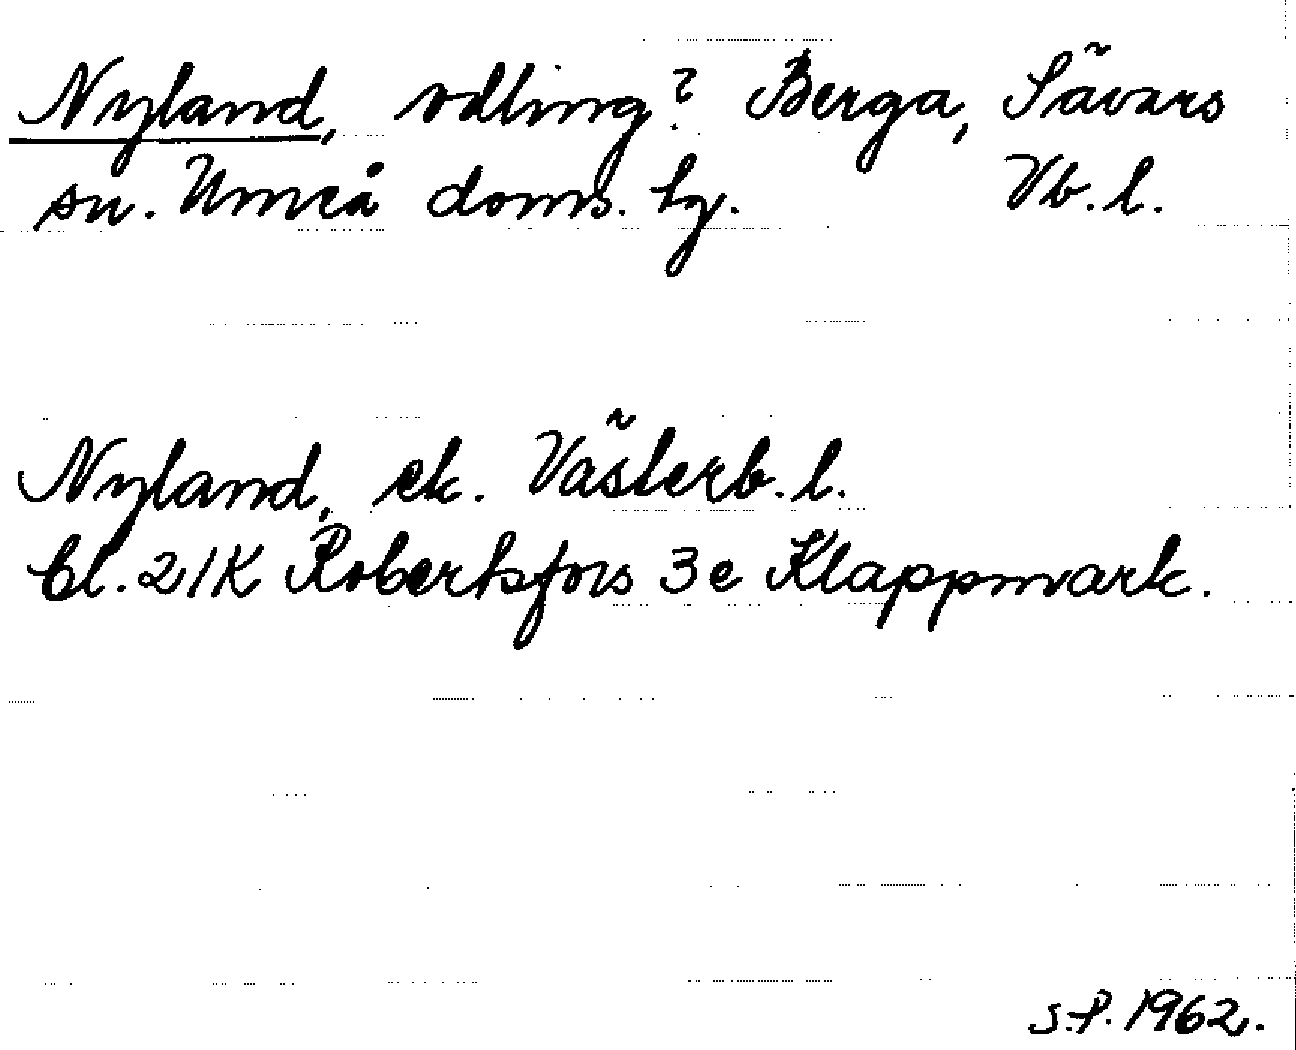 Nyland, odling? Berga, Sävars
sn. Umeå doms. hg. Vb. l.
Nyland, ek. Västerb. l.
Bl. 21K Robertsfors 3e Klappmark.
S.P. 1962.